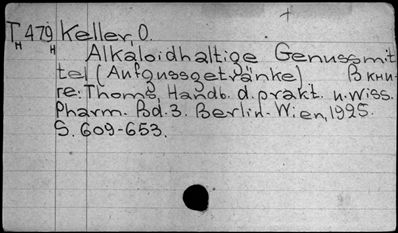 T 479 Keller, O.
H H
Alkaloidhaltige Genussmit
tel (Aufgussgetränke) В кни-
ге: Thoms, Handb. d. prakt. u. wiss.
Pharm. Bd. 3. Berlin-Wien, 1925.
S. 609-653.